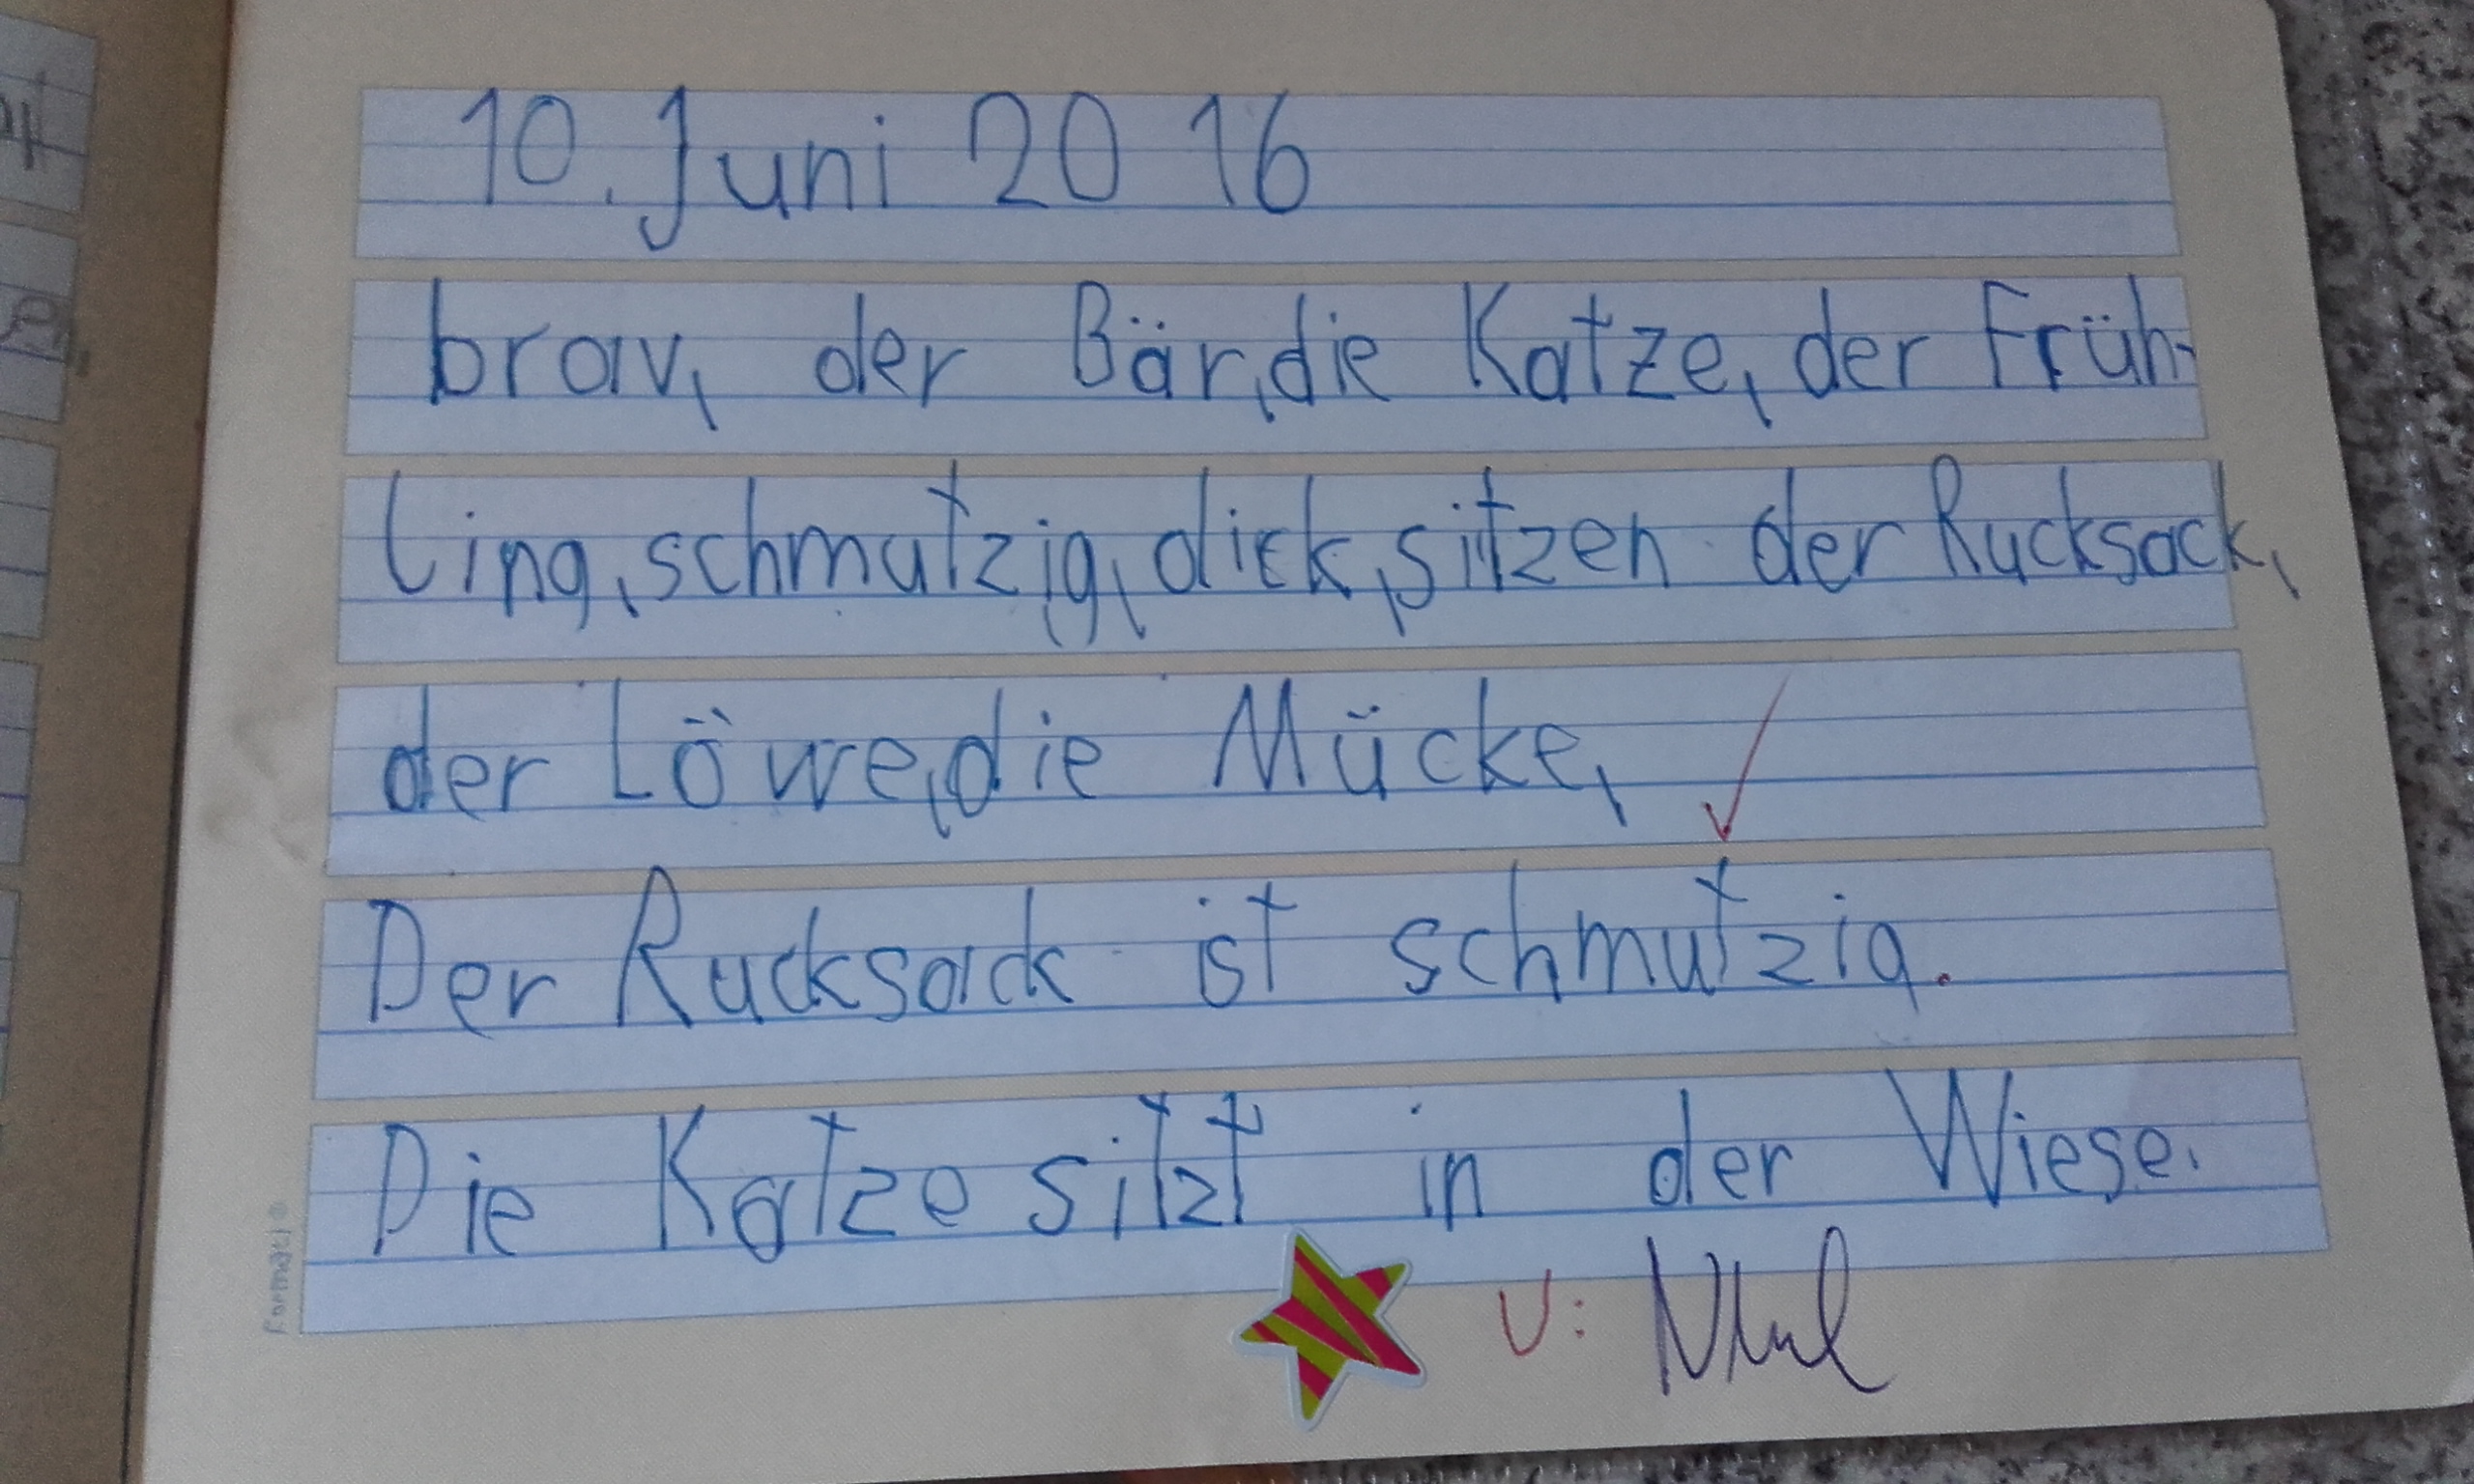 10. Juni 2016
brav, der Bär, die Katze, der Früh-
ling, schmutzig, dick, sitzen der Rucksack,
der Löwe, die Mücke,
Der Rucksack ist schmutzig.
Die Katze sitzt in der Wiese.
U: